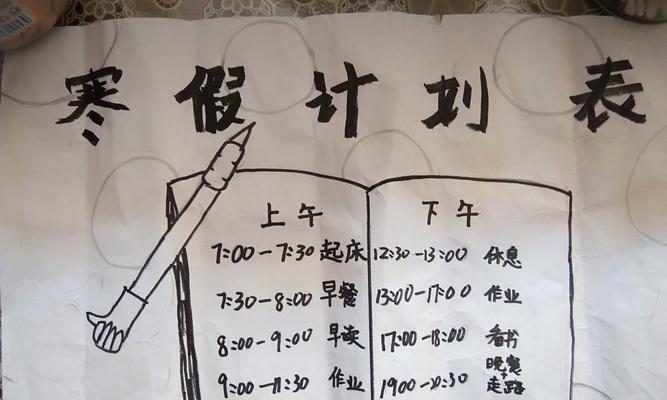 寒假计划表
上午
7:00-7:30 起床
7:30-8:00 早餐
8:00-9:00 早读
9:00-11:30 作业
下午
12:30-13:00 休息
13:00-17:00 作业
17:00-18:00 看书
1900-20:30 晚餐+走路